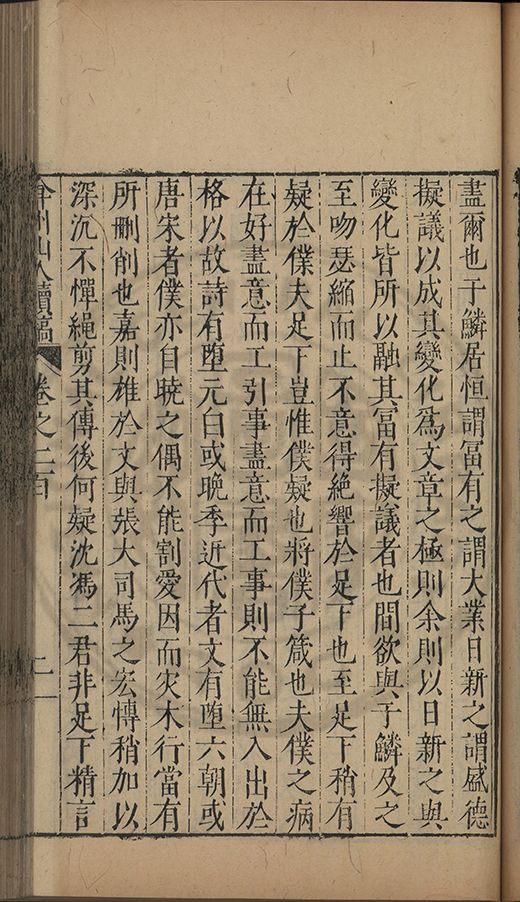 盡爾也于鱗居恒謂冨有之謂大業日新之謂盛德
擬議以成其變化為文章之極則余則以日新之與
變化皆所以融其冨有擬議者也間欲與于鱗及之
至吻瑟縮而止不意得絶響於足下也至足下稍有
疑於僕夫足下豈惟僕疑也將僕子箴也夫僕之病
在好盡意而工引事盡意而工事則不能無入出於
格以故詩有堕元白或晚季近代者文有堕六朝或
唐宋者僕亦自曉之偶不能割愛因而灾木行當有
所刪削也嘉則雄於文與張大司馬之宏愽稍加以
深沉不憚䋲剪其傳後何疑沈馮二君非足下精言
弇州山人續稿 卷之二百 二